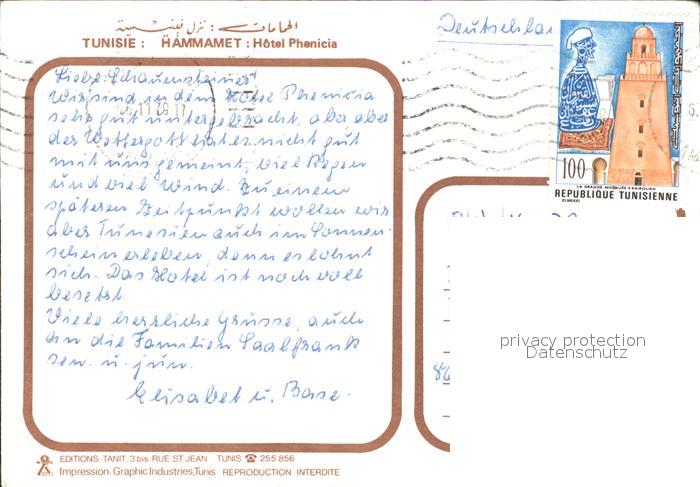 الحمامات : نزل فينيسية
TUNISIE : HAMMAMET : Hôtel Phenicia
Deutschla
Liebe Schauensteiner!
Wir sind in dem Hotel Phenicia
sehr gut untergebracht, aber aber
der Wettergott hat es nicht gut
mit uns gemeint, viel Regen
und viel Wind. Zu einem
späteren Zeitpunkt wollen wir
aber Tunesien auch im Sonnen-
schein erleben, denn es lohnt
sich. Das Hotel ist noch voll
besetzt.
Viele herzliche Grüsse, auch
an die Familien Saalfrank
sen. u. jun.
Elisabet u. Base.
100
LA GRANDE MOSQUÉE KAIROUAN
REPUBLIQUE TUNISIENNE
ELMEKKI
الجمهورية التونسية
privacy protection
Datenschutz
86
EDITIONS TANIT, 3 bis RUE ST JEAN TUNIS ☎ 255 856
Impression: Graphic Industries, Tunis REPRODUCTION INTERDITE